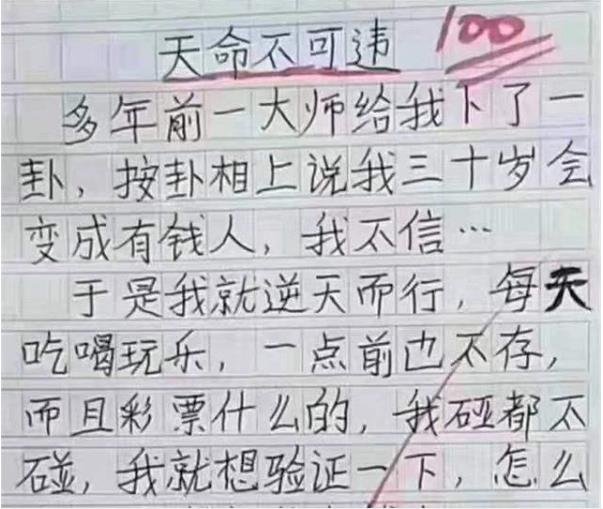 天命不可违 100
多年前一大师给我下了一
卦，按卦相上说我三十岁会
变成有钱人，我不信…
于是我就逆天而行，每天
吃喝玩乐，一点前也不存，
而且彩票什么的，我碰都不
碰，我就想验证一下，怎么